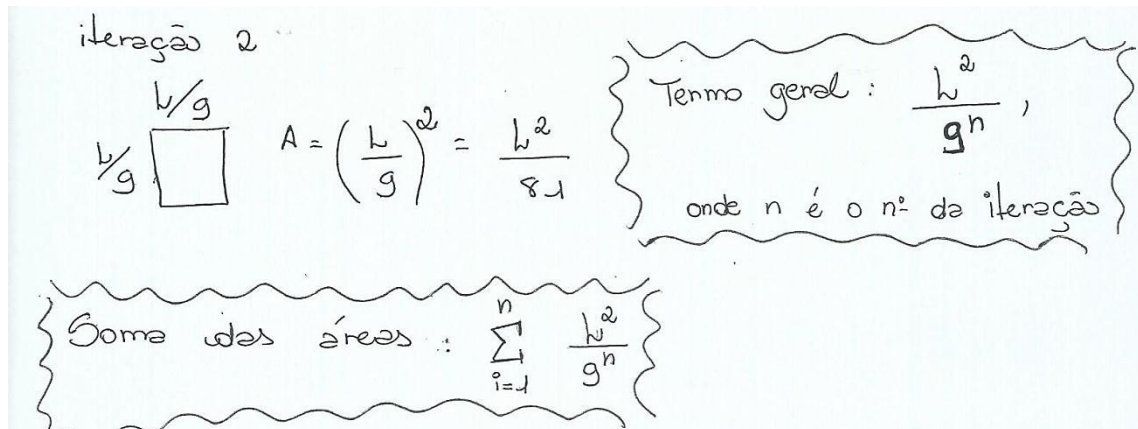 iteração 2
L/9
L/9
A = (L/9)² = L²/81
Termo geral: L²/9ⁿ,
onde n é o nº da iteração
Soma das áreas: n Σ i=1 L²/9ⁿ